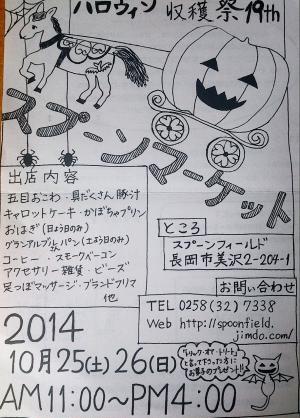 ハロウィン 収穫祭 19th
スプーンマーケット
出店内容
五目おこわ・具だくさん豚汁
キャロットケーキ・かぼちゃプリン
おはぎ(日よう日のみ)
グランアルブルさんパン(土よう日のみ)
コーヒー・スモークベーコン
アクセサリー雑貨・ビーズ
足つぼマッサージ・ブランドフリマ
他
ところ
スプーンフィールド
長岡市美沢2-204-1
お問い合わせ
TEL 0258(32)7338
Web http://spoonfield.
jimdo.com/
2014
10月25(土)26(日)
AM11:00~PM4:00
"トリック・オア・トリート"
と言って下さった方に
お菓子のプレゼント!!